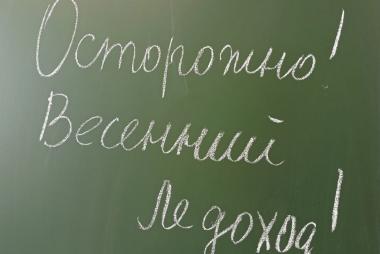 Осторожно!
Весенний
Ледоход!